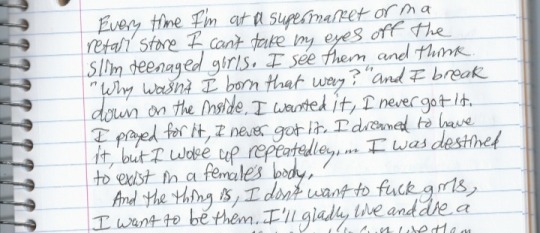 Every time I'm at a supermarket or in a
retail store I can't take my eyes off the
slim teenaged girls. I see them and think
"Why wasn't I born that way?" and I break
down on the inside. I wanted it, I never got it.
I prayed for it, I never got it. I dreamed to have
it, but I woke up repeatedley,... I was destined
to exist in a female's body.
And the thing is, I don't want to fuck girls,
I want to be them. I'll gladly live and die a